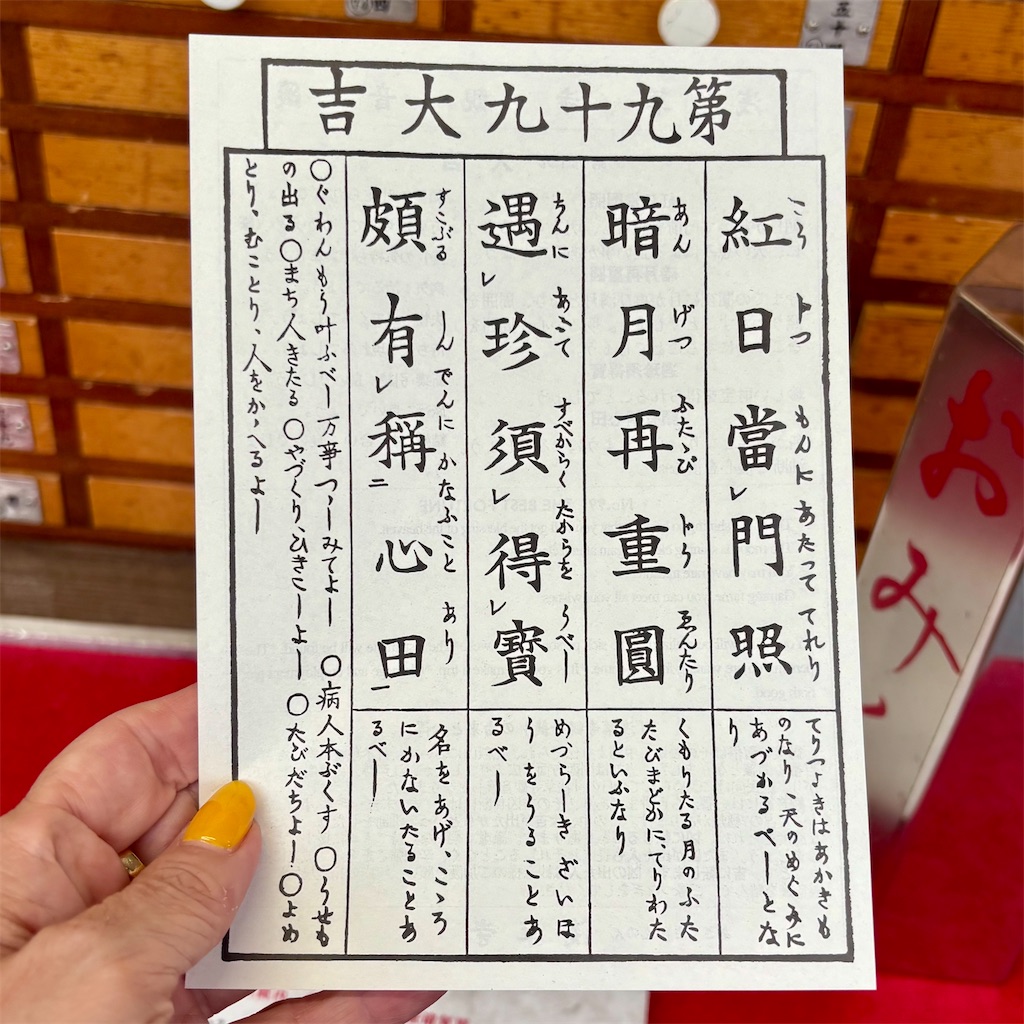 第九十九大吉
こう じつ もんに あたつて てれり
紅日當レ門照
てりつよきはあかきも
のなり、天のめぐみに
あづかるべしとな
り
あん げつ ふたゝび じう ゑんたり
暗月再重圓
くもりたる月のふた
たびまどかに、てりわた
るといふなり
ちんに あふて すべからく たからを うべし
遇レ珍須レ得レ寶
めづらしきざいほ
うをうることあ
るべし
すこぶる しんでんにかなふこと あり
頗有レ稱二心田一
名をあげ、こゝろ
にかないたることあ
るべし
〇ぐわんもう叶ふべし 万事つゝしみてよし 〇病人本ぶくす 〇うせも
の出る〇まち人きたる〇やづくり、ひきこしよし 〇たびだちよし〇よめ
とり、むことり、人をかゝへるよし
おみ